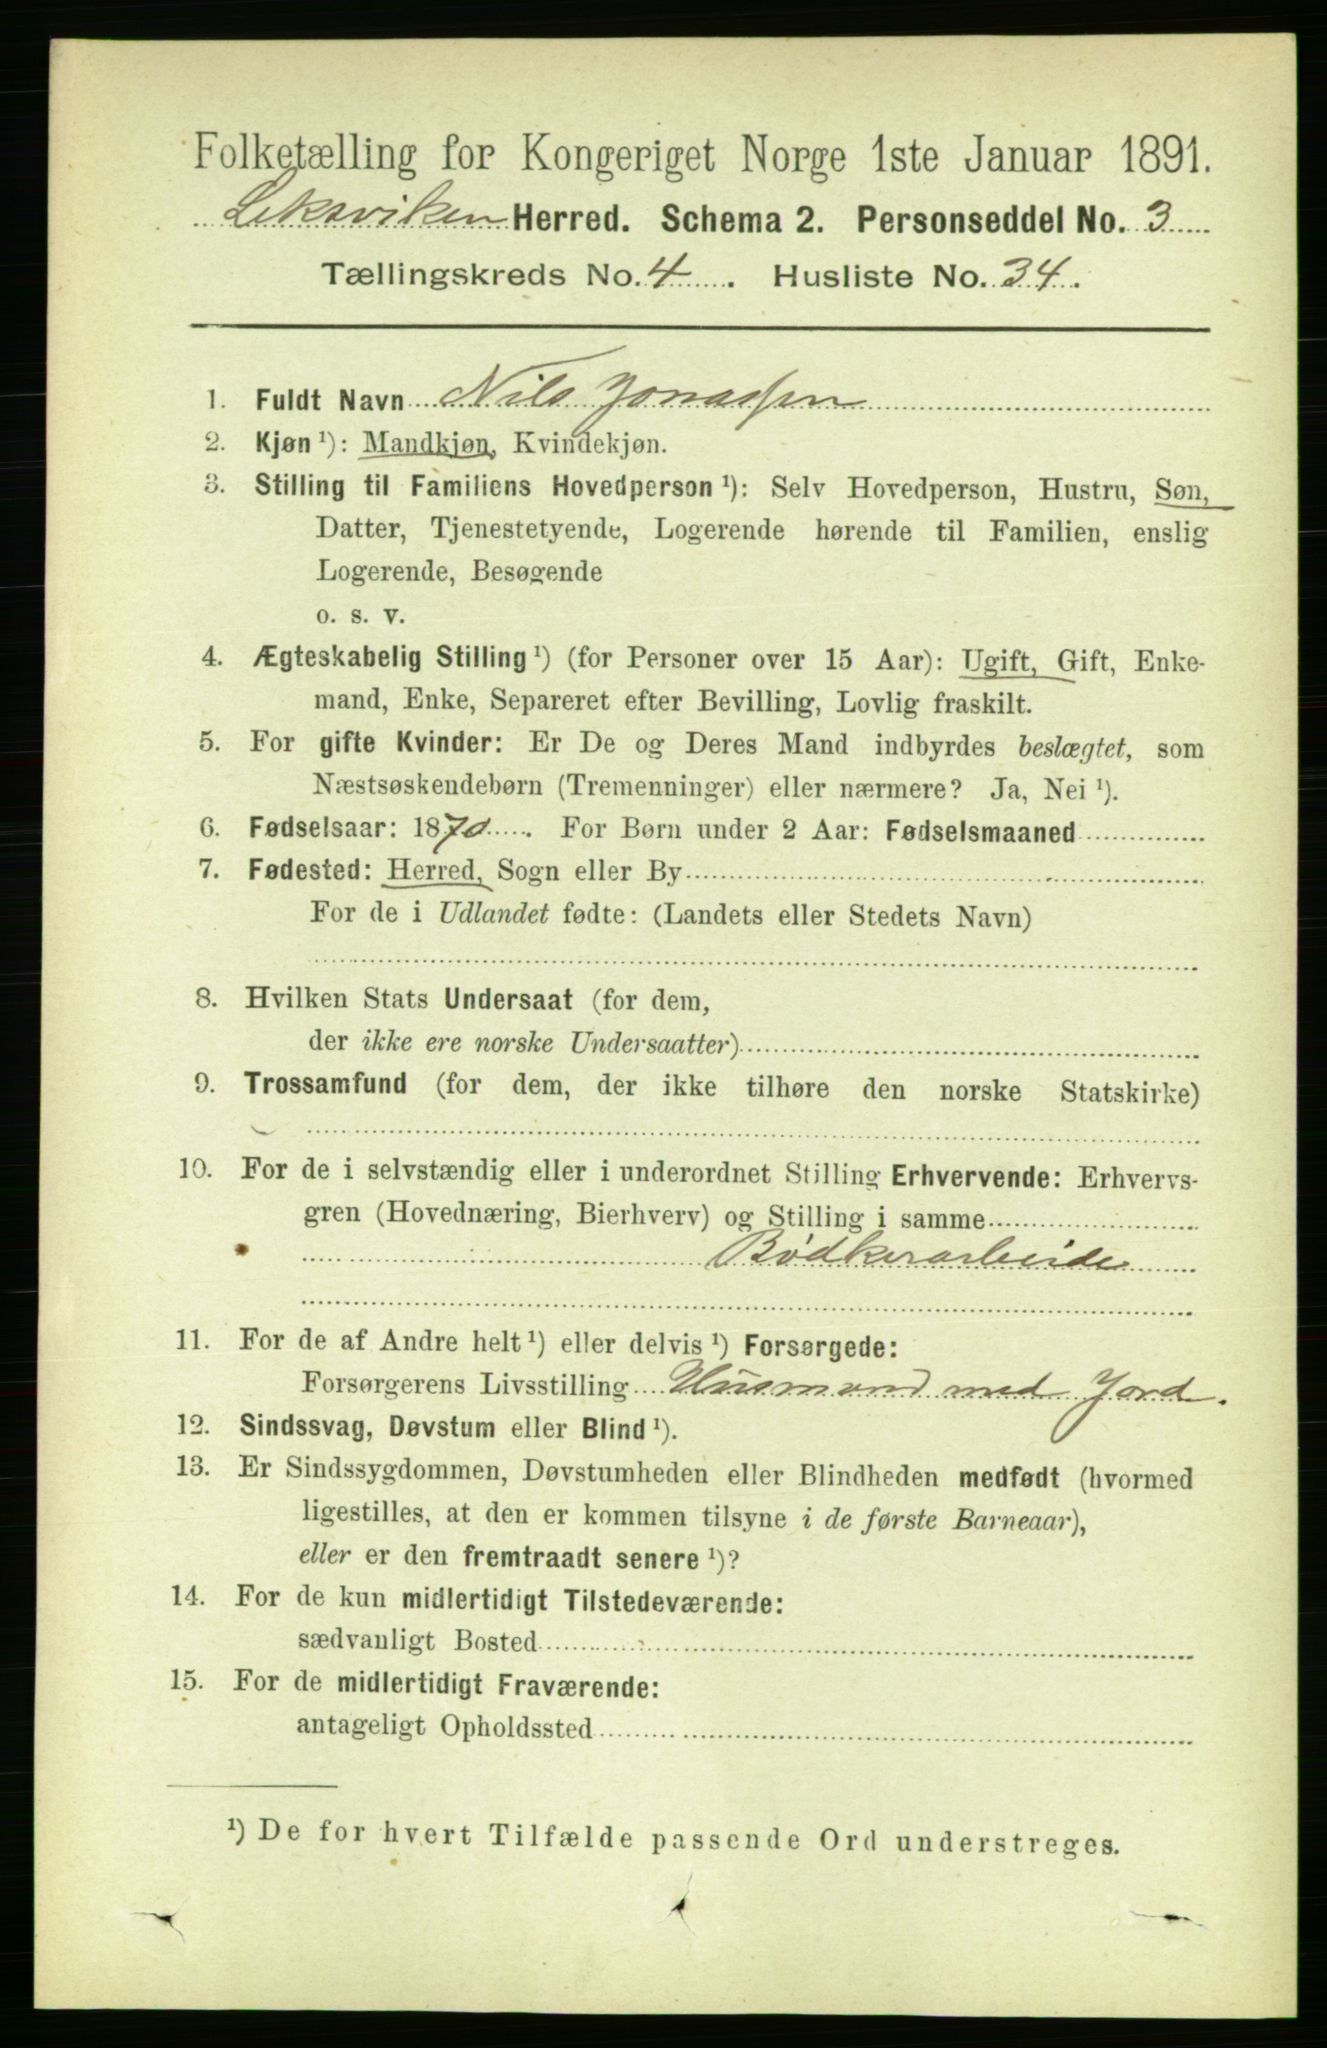 Folketælling for Kongeriget Norge 1ste Januar 1891.
Leksviken Herred. Schema 2. Personseddel No. 3
Tællingskreds No. 4. Husliste No. 34.
1. Fuldt Navn Nils Jonassen
2. Kjøn ¹): Mandkjøn, Kvindekjøn.
3. Stilling til Familiens Hovedperson ¹): Selv Hovedperson, Hustru, Søn,
Datter, Tjenestetyende, Logerende hørende til Familien, enslig
Logerende, Besøgende
o. s. v.
4. Ægteskabelig Stilling ¹) (for Personer over 15 Aar): Ugift, Gift, Enke-
mand, Enke, Separeret efter Bevilling, Lovlig fraskilt.
5. For gifte Kvinder: Er De og Deres Mand indbyrdes beslægtet, som
Næstsøskendebørn (Tremenninger) eller nærmere? Ja, Nei ¹).
6. Fødselsaar: 1870. For Børn under 2 Aar: Fødselsmaaned
7. Fødested: Herred, Sogn eller By
For de i Udlandet fødte: (Landets eller Stedets Navn)
8. Hvilken Stats Undersaat (for dem,
der ikke ere norske Undersaatter)
9. Trossamfund (for dem, der ikke tilhøre den norske Statskirke)
10. For de i selvstændig eller i underordnet Stilling Erhvervende: Erhvervs-
gren (Hovednæring, Bierhverv) og Stilling i samme
Bødkerarbeide
11. For de af Andre helt ¹) eller delvis ¹) Forsørgede:
Forsørgerens Livsstilling Husmand med Jord.
12. Sindssvag, Døvstum eller Blind ¹).
13. Er Sindssygdommen, Døvstumheden eller Blindheden medfødt (hvormed
ligestilles, at den er kommen tilsyne i de første Barneaar),
eller er den fremtraadt senere ¹)?
14. For de kun midlertidigt Tilstedeværende:
sædvanligt Bosted
15. For de midlertidigt Fraværende:
antageligt Opholdssted
¹) De for hvert Tilfælde passende Ord understreges.